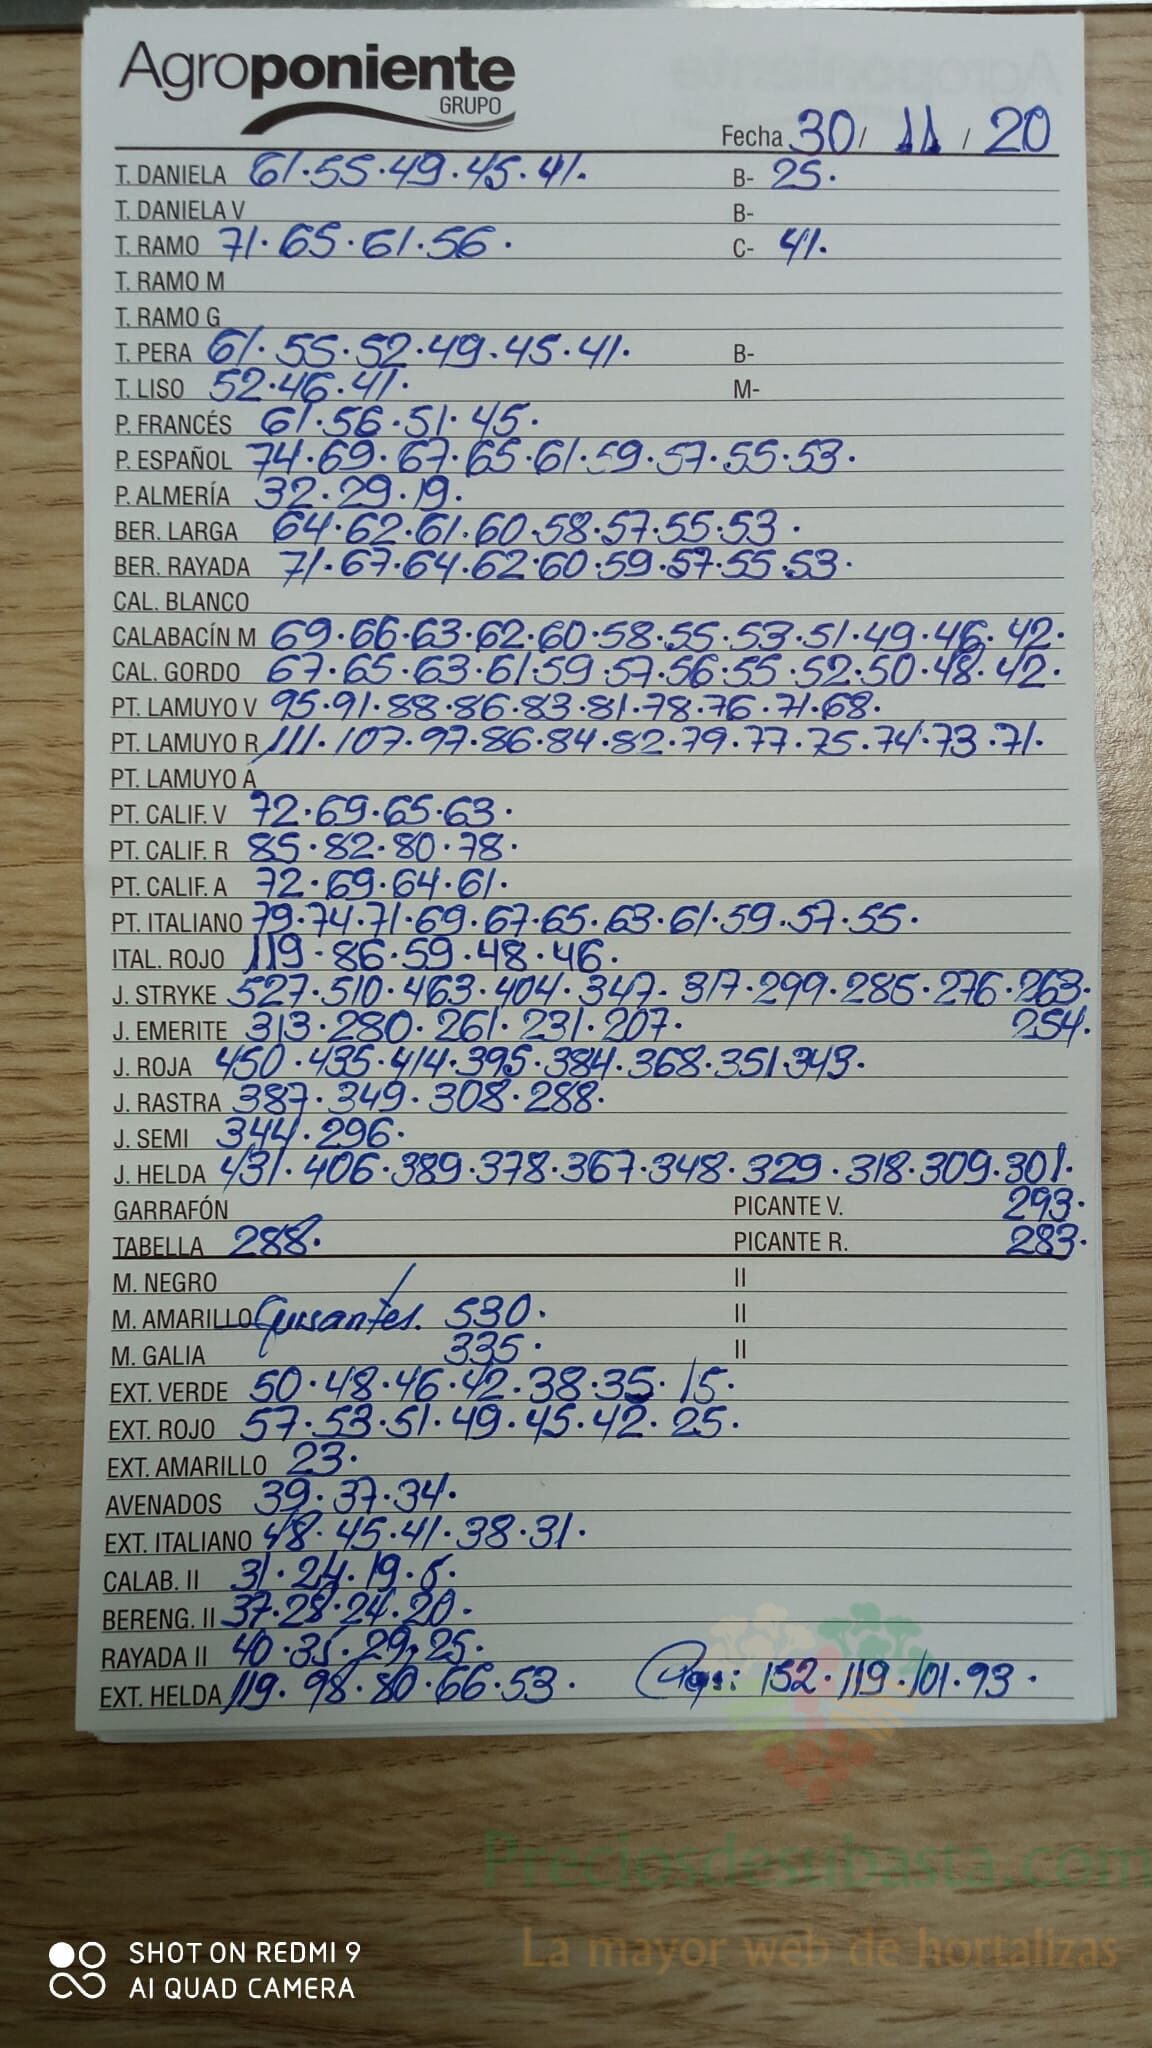 Agroponiente
GRUPO
Fecha 30 / 11 / 20
T. DANELA 61.55.49.45.41. B- 25.
T. DANIELA V B-
T. RAMO 71.65.61.56. C- 41.
T. RAMO M
T. RAMO G
T. PERA 61.55.52.49.45.41. B-
T. LISO 52.46.41. M-
P. FRANCÉS 61.56.51.45.
P. ESPAÑOL 74.69.67.65.61.59.57.55.53.
P. ALMERÍA 32.29.19.
BER. LARGA 64.62.61.60.58.57.55.53.
BER. RAYADA 71.67.64.62.60.59.57.55.53.
CAL. BLANCO
CALABACÍN M 69.66.63.62.60.58.55.53.51.49.46.42.
CAL. GORDO 67.65.63.61.59.57.56.55.52.50.48.42.
PT. LAMUYO V 95.91.88.86.83.81.78.76.71.68.
PT. LAMUYO R 111.107.97.86.84.82.79.77.75.74.73.71.
PT. LAMUYO A
PT. CALIF. V 72.69.65.63.
PT. CALIF. R 85.82.80.78.
PT. CALIF. A 72.69.64.61.
PT. ITALIANO 79.74.71.69.67.65.63.61.59.57.55.
ITAL. ROJO 119.86.59.48.46.
J. STRYKE 527.510.463.404.347.317.299.285.276.263.
J. EMERITE 313.280.261.231.207. 254.
J. ROJA 450.435.414.395.384.368.351.343.
J. RASTRA 387.349.308.288.
J. SEMI 344.296.
J. HELDA 431.406.389.378.367.348.329.318.309.301.
GARRAFÓN PICANTE V. 293.
TABELLA 288. PICANTE R. 283.
M. NEGRO II
M. AMARILLO Guisantes. 530. II
M. GALIA 335. II
EXT. VERDE 50.48.46.42.38.35.15.
EXT. ROJO 57.53.51.49.45.42.25.
EXT. AMARILLO 23.
AVENADOS 39.37.34.
EXT. ITALIANO 48.45.41.38.31.
CALAB. II 31.24.19.6.
BERENG. II 37.28.24.20.
RAYADA II 40.35.29.25.
EXT. HELDA 119.98.80.66.53. 152.119.101.93.
Preciosdesubasta.com
La mayor web de hortalizas
SHOT ON REDMI 9
AI QUAD CAMERA